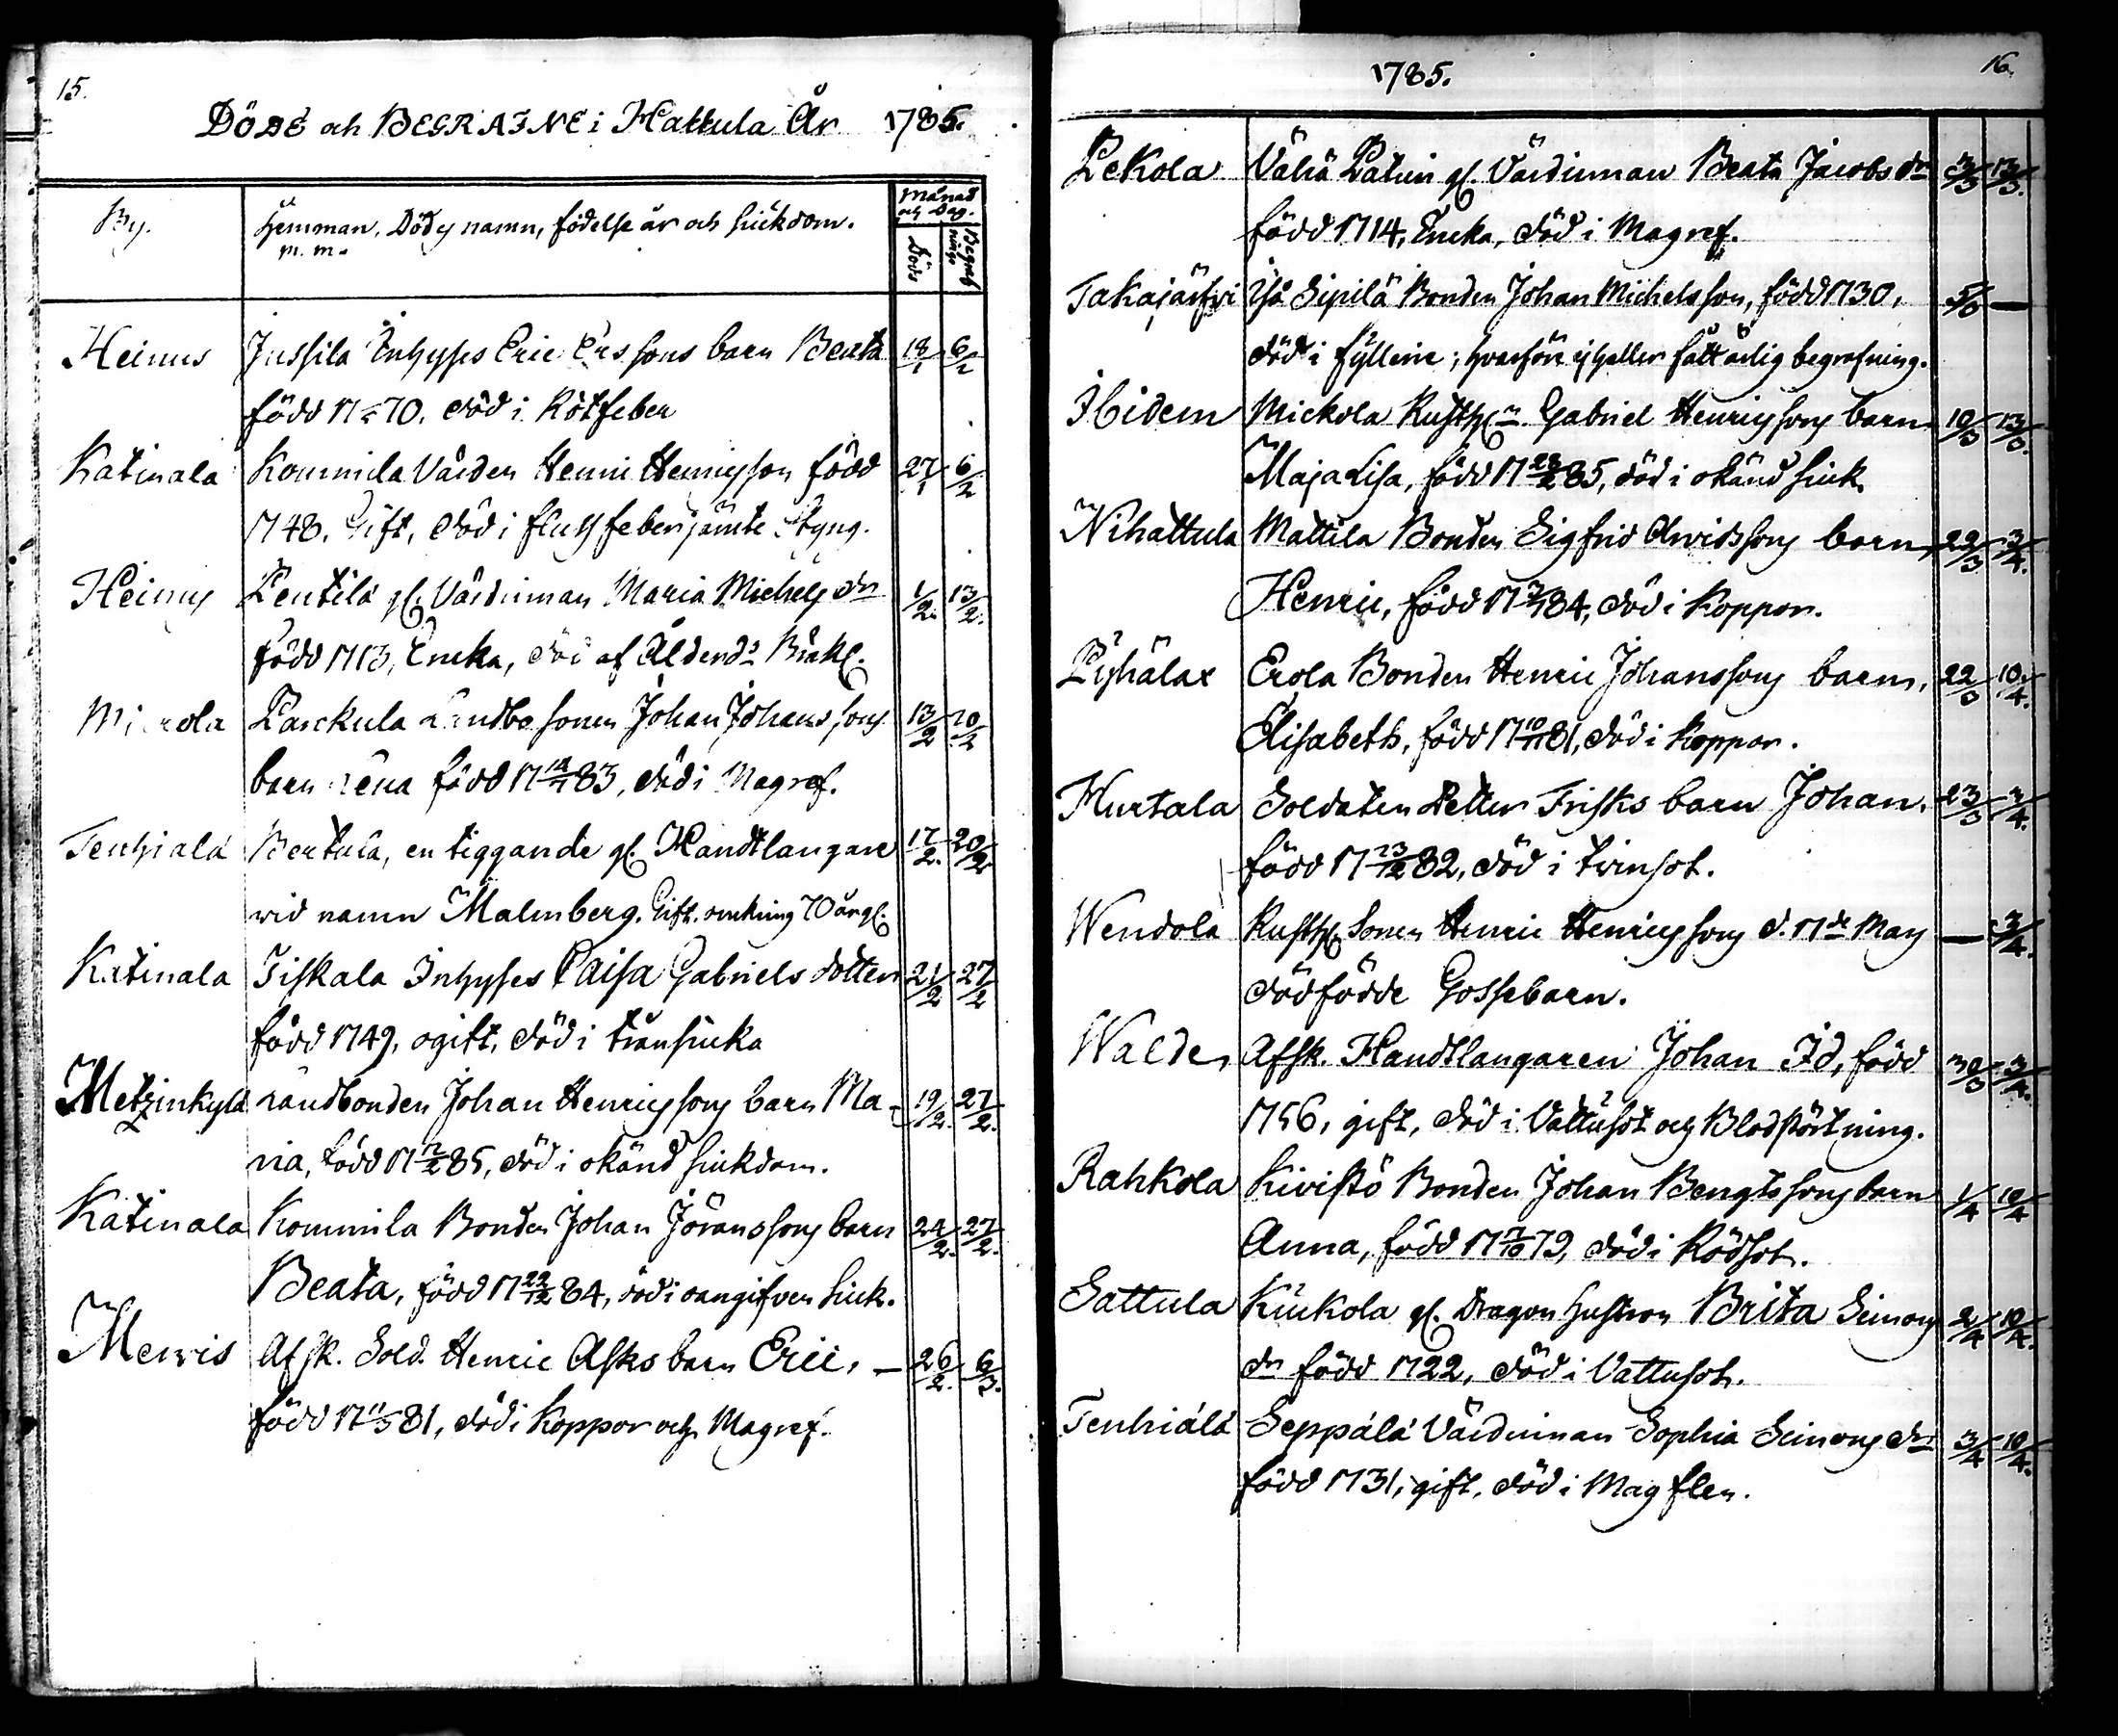 15.
DÖDE och BEGRAFNE i Hattula År 1785.
By.
Hemman, Dödes namn, födelse år och siukdom.
m. m.
Månad
och Dag.
Döds
Begraf
nings
Heinus Jussila Inhyses Eric Erssons barn Beata 18/1 6/2
född 17 70, död i Rötfeber
Katinala Kommila Värden Henric Henricsson född 27/1 6/2
1748. Gift, död i fluss feber jämte Styng.
Heinus Pentilä gl. Värdinnan Maria Michels dr 1/2. 13/2.
född 1713, Encka, död af Ålderds Bräckl.
Mi kola Parckula Landbo sonen Johan Johanssons 13/2 20/2
barn Lena född 17 83, död i Magref.
Tenhiälä Bertula, en tiggande gl. Handtlangare 17/2. 20/2
vid namn Malmberg. Gift. omkring 70 år gl.
Katinala Tiskala Inhyses Caisa Gabriels dotter 21/2 27/2
född 1749, ogift, död i tränsiuka
Metzinkylä Landbonden Johan Henricssons barn Ma- 19/2. 27/2.
ria, född 17 12/2 85, död i okänd siukdom.
Katinala Kommila Bonden Johan Jöranssons barn 24/2. 27/2.
Beata, född 17 22/12 84, död i oangifven siuk.
Merwis Afsk. Sold. Henric Asks barn Eric, — 26/2. 6/3.
född 17 11/5 81, död i Koppor och Magref.
1785.
16.
Pekola Vähä Patuin gl. Värdinnan Beata Jacobs dr 3/3 13/3.
född 1714, Encka, död i Magref.
Takajärfvi Yså Sipilä Bonden Johan Michelsson, född 1730, 5/3 —
död i fylleri; hvarföre ej heller fått ärlig begrafning.
Ibidem Mickola Rusth. Gabriel Henricssons barn 10/3 13/3.
Maja Lisa, född 17 28/2 85, död i okänd siuk.
Nihattula Mattila Bonden Sigfrid Arvidssons barn, 22/3 3/4.
Henric, född 17 84, död i Koppor.
Pyhälax Erola Bonden Henric Johanssons barn, 22/3 10/4.
Elisabeth, född 17 10/11 81, död i Koppor.
Hurtala Soldaten Petter Frisks barn Johan, 23/3 3/4.
född 17 23/12 82, död i tvinsot.
Wendola Rusth. Sonen Henric Henricssons d. 17de Mars — 3/4.
dödfödde Gossebarn.
Walde, Afsk. Handtlangaren Johan Id, född 30/3 3/4.
1756, gift, död i Vattusot och Blodstörtning.
Rahkola Kivistö Bonden Johan Bengtssons barn 1/4 10/4
Anna, född 17 7/10 79, död i Rödsot.
Sattula Kiukola gl. Dragon hustron Brita Simons 2/4 10/4.
dr född 1722, död i Vattusot.
Tenhiälä Seppälä Värdinnan Sophia Simons dr 3/4 10/4.
född 1731, gift, död i Mag flen.